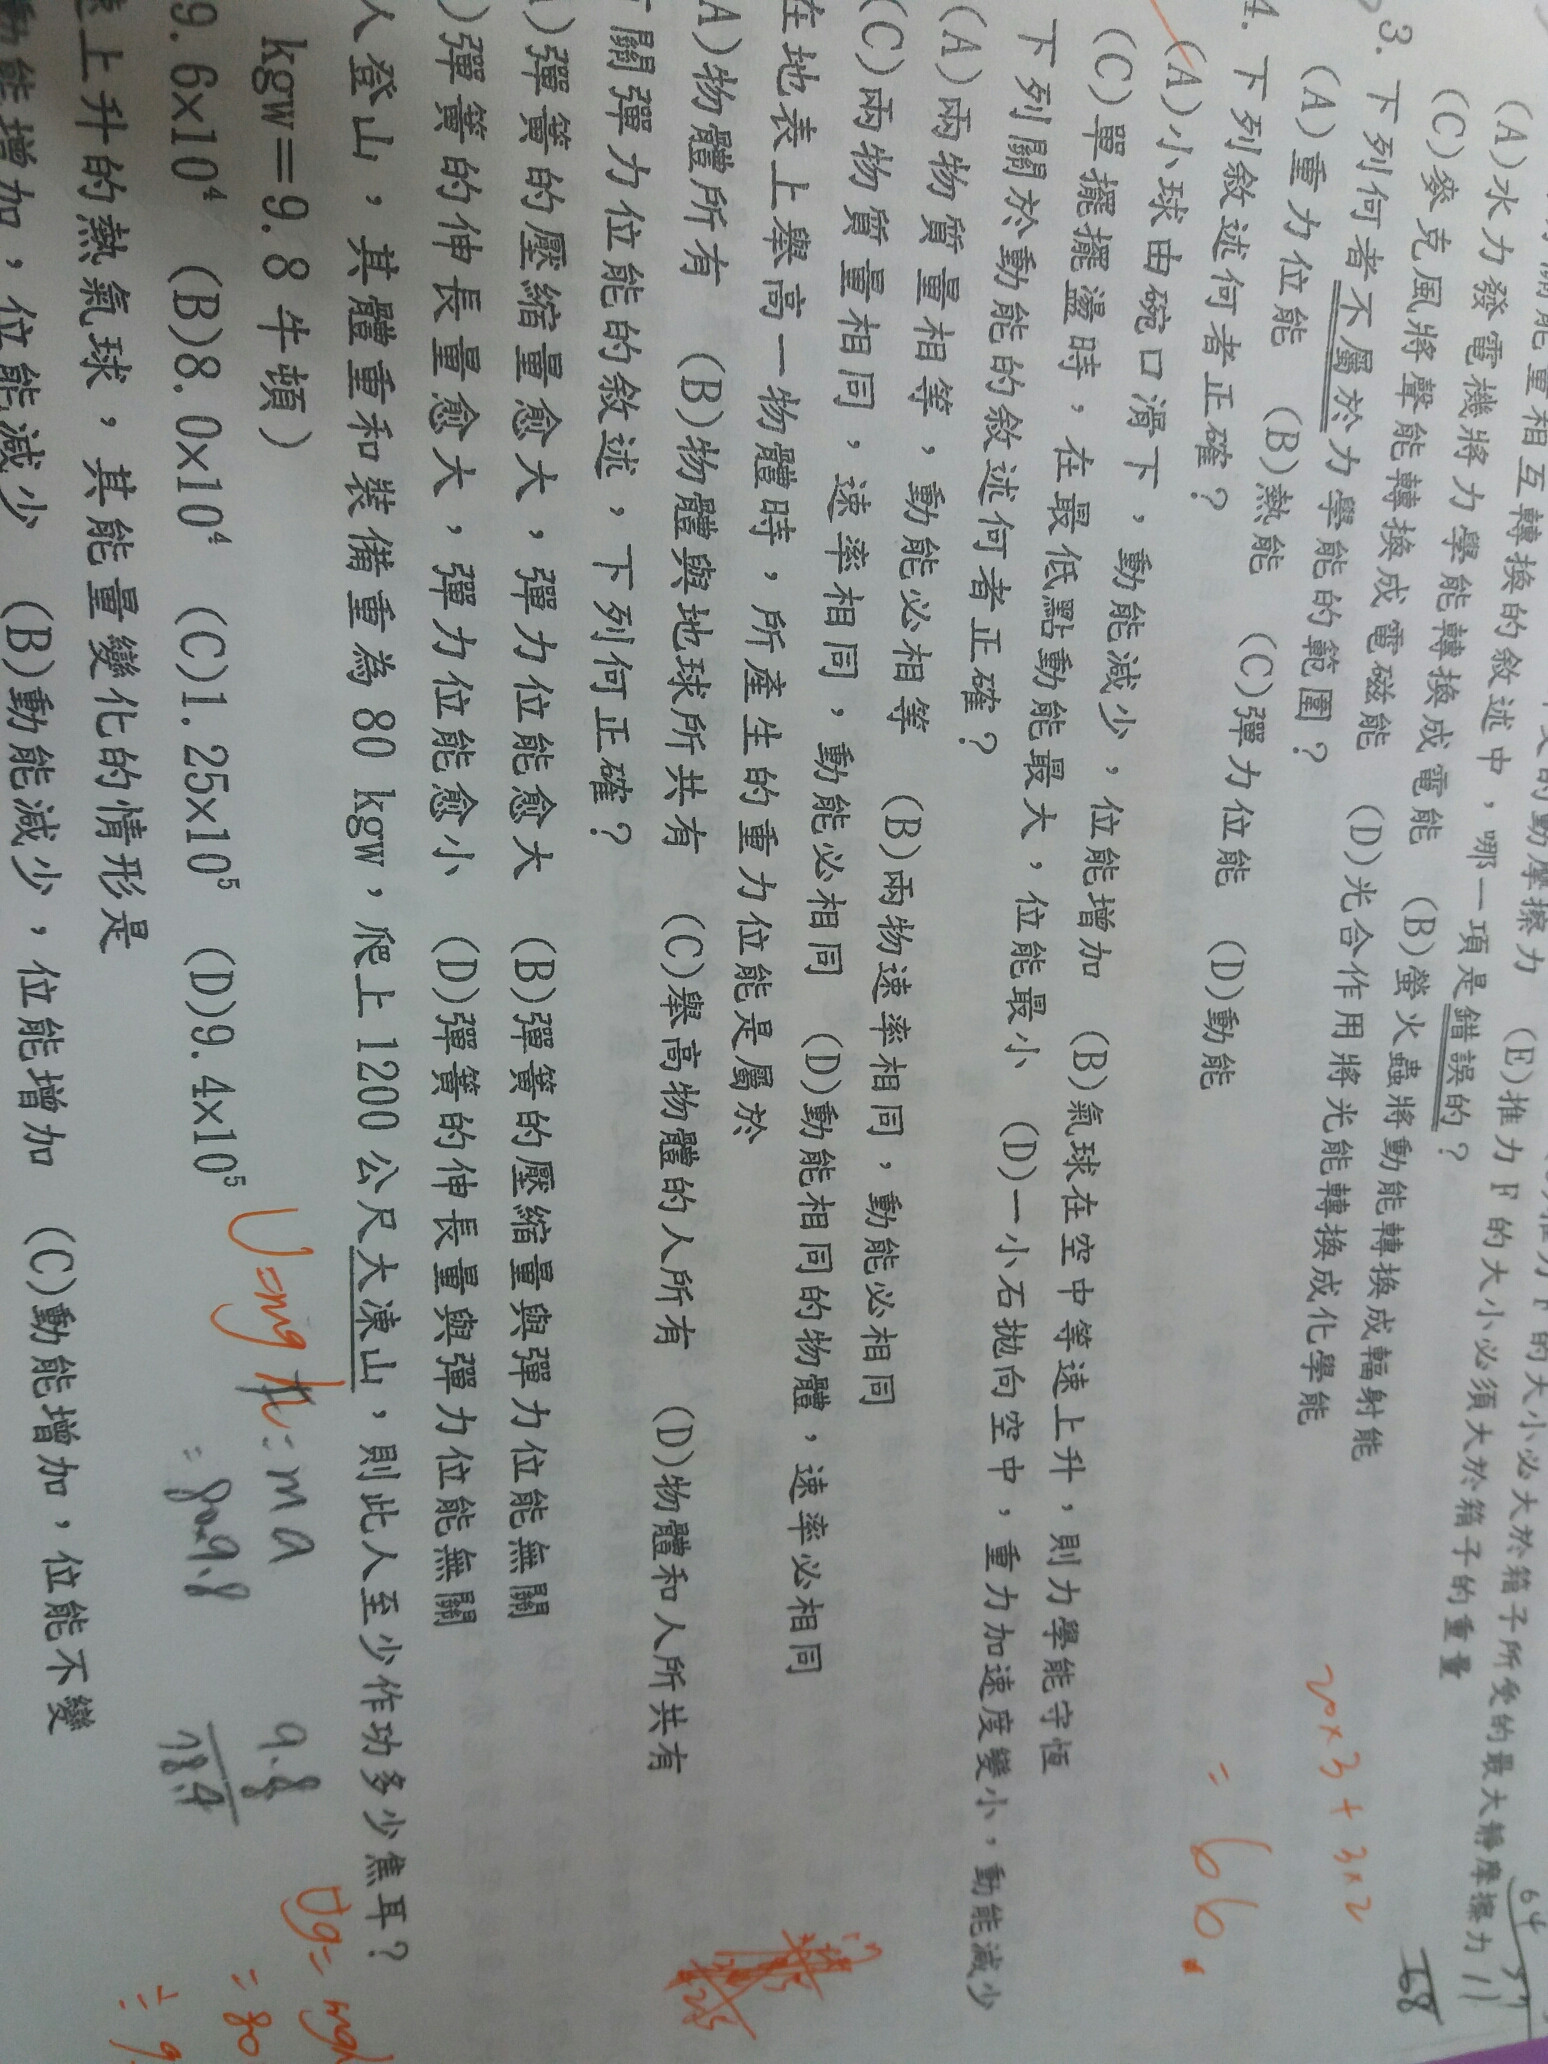 能量相互轉換的敘述中，哪一項是錯誤的？
(E)推力 F 的大小必須大於箱子的重量
(A)水力發電機將力學能轉換成電能 (B)螢火蟲將動能轉換成輻射能
(C)麥克風將聲能轉換成電磁能 (D)光合作用將光能轉換成化學能
3. 下列何者不屬於力學能的範圍？
(A)重力位能 (B)熱能 (C)彈力位能 (D)動能
4. 下列敘述何者正確？
(A)小球由碗口滑下，動能減少，位能增加 (B)氣球在空中等速上升，則力學能守恆
(C)單擺擺盪時，在最低點動能最大，位能最小 (D)一小石拋向空中，重力加速度變小，動能減少
下列關於動能的敘述何者正確？
(A)兩物質量相等，動能必相等 (B)兩物速率相同，動能必相同
(C)兩物質量相同，速率相同，動能必相同 (D)動能相同的物體，速率必相同
在地表上舉高一物體時，所產生的重力位能是屬於
A)物體所有 (B)物體與地球所共有 (C)舉高物體的人所有 (D)物體和人所共有
關彈力位能的敘述，下列何正確？
)彈簧的壓縮量愈大，彈力位能愈大 (B)彈簧的壓縮量與彈力位能無關
)彈簧的伸長量愈大，彈力位能愈小 (D)彈簧的伸長量與彈力位能無關
人登山，其體重和裝備重為 80 kgw，爬上 1200 公尺大凍山，則此人至少作功多少焦耳？
kgw＝9.8 牛頓）
9.6×10⁴ (B)8.0×10⁴ (C)1.25×10⁵ (D)9.4×10⁵
上升的熱氣球，其能量變化的情形是
動能增加，位能減少 (B)動能減少，位能增加 (C)動能增加，位能不變
20×3+3×2
=66.
U=mgh=ma
=80×9.8
9.8
78.4
Ug=mgh
=80